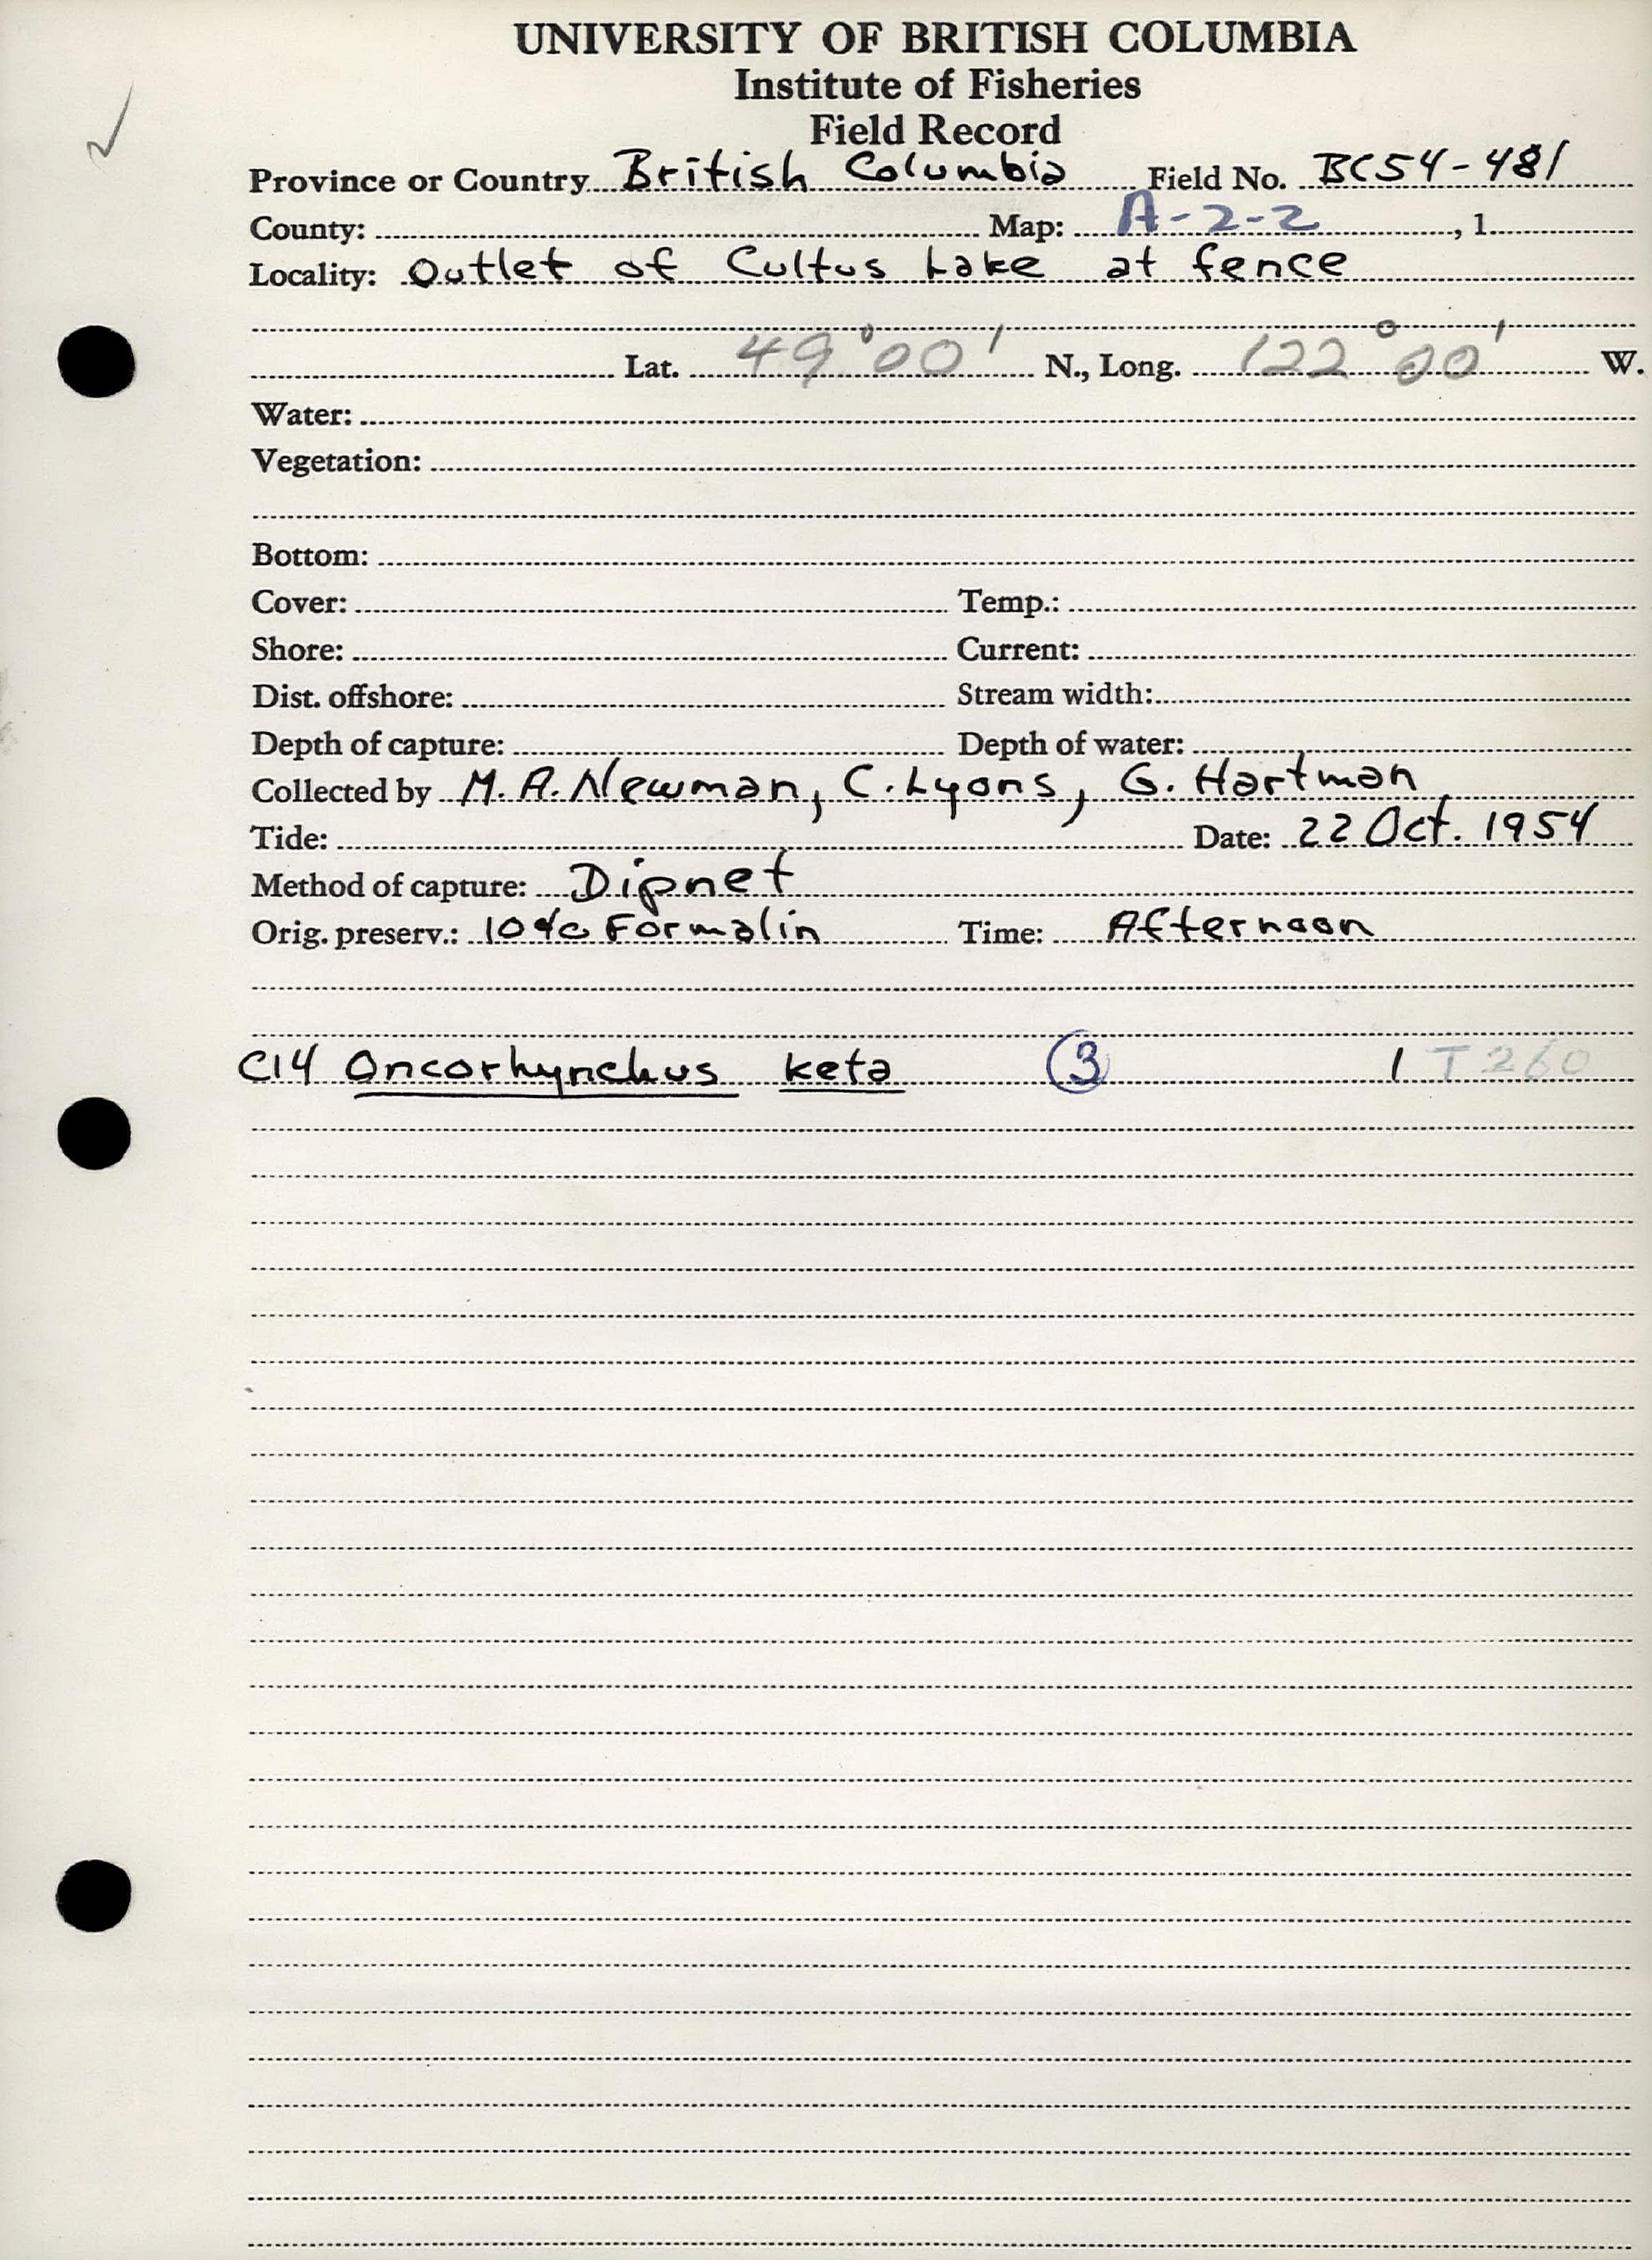 UNIVERSITY OF BRITISH COLUMBIA
Institute of Fisheries
Field Record
Province or Country British Columbia Field No. BC54-481
County: Map: A-2-2 , 1
Locality: Outlet of Cultus Lake at fence
Lat. 49°00' N., Long. 122°00' W.
Water:
Vegetation:
Bottom:
Cover: Temp.:
Shore: Current:
Dist. offshore: Stream width:
Depth of capture: Depth of water:
Collected by M. A. Newman, C. Lyons, G. Hartman
Tide: Date: 22 Oct. 1954
Method of capture: Dipnet
Orig. preserv.: 10% Formalin Time: Afternoon
C14 Oncorhynchus keta 3 1 T260